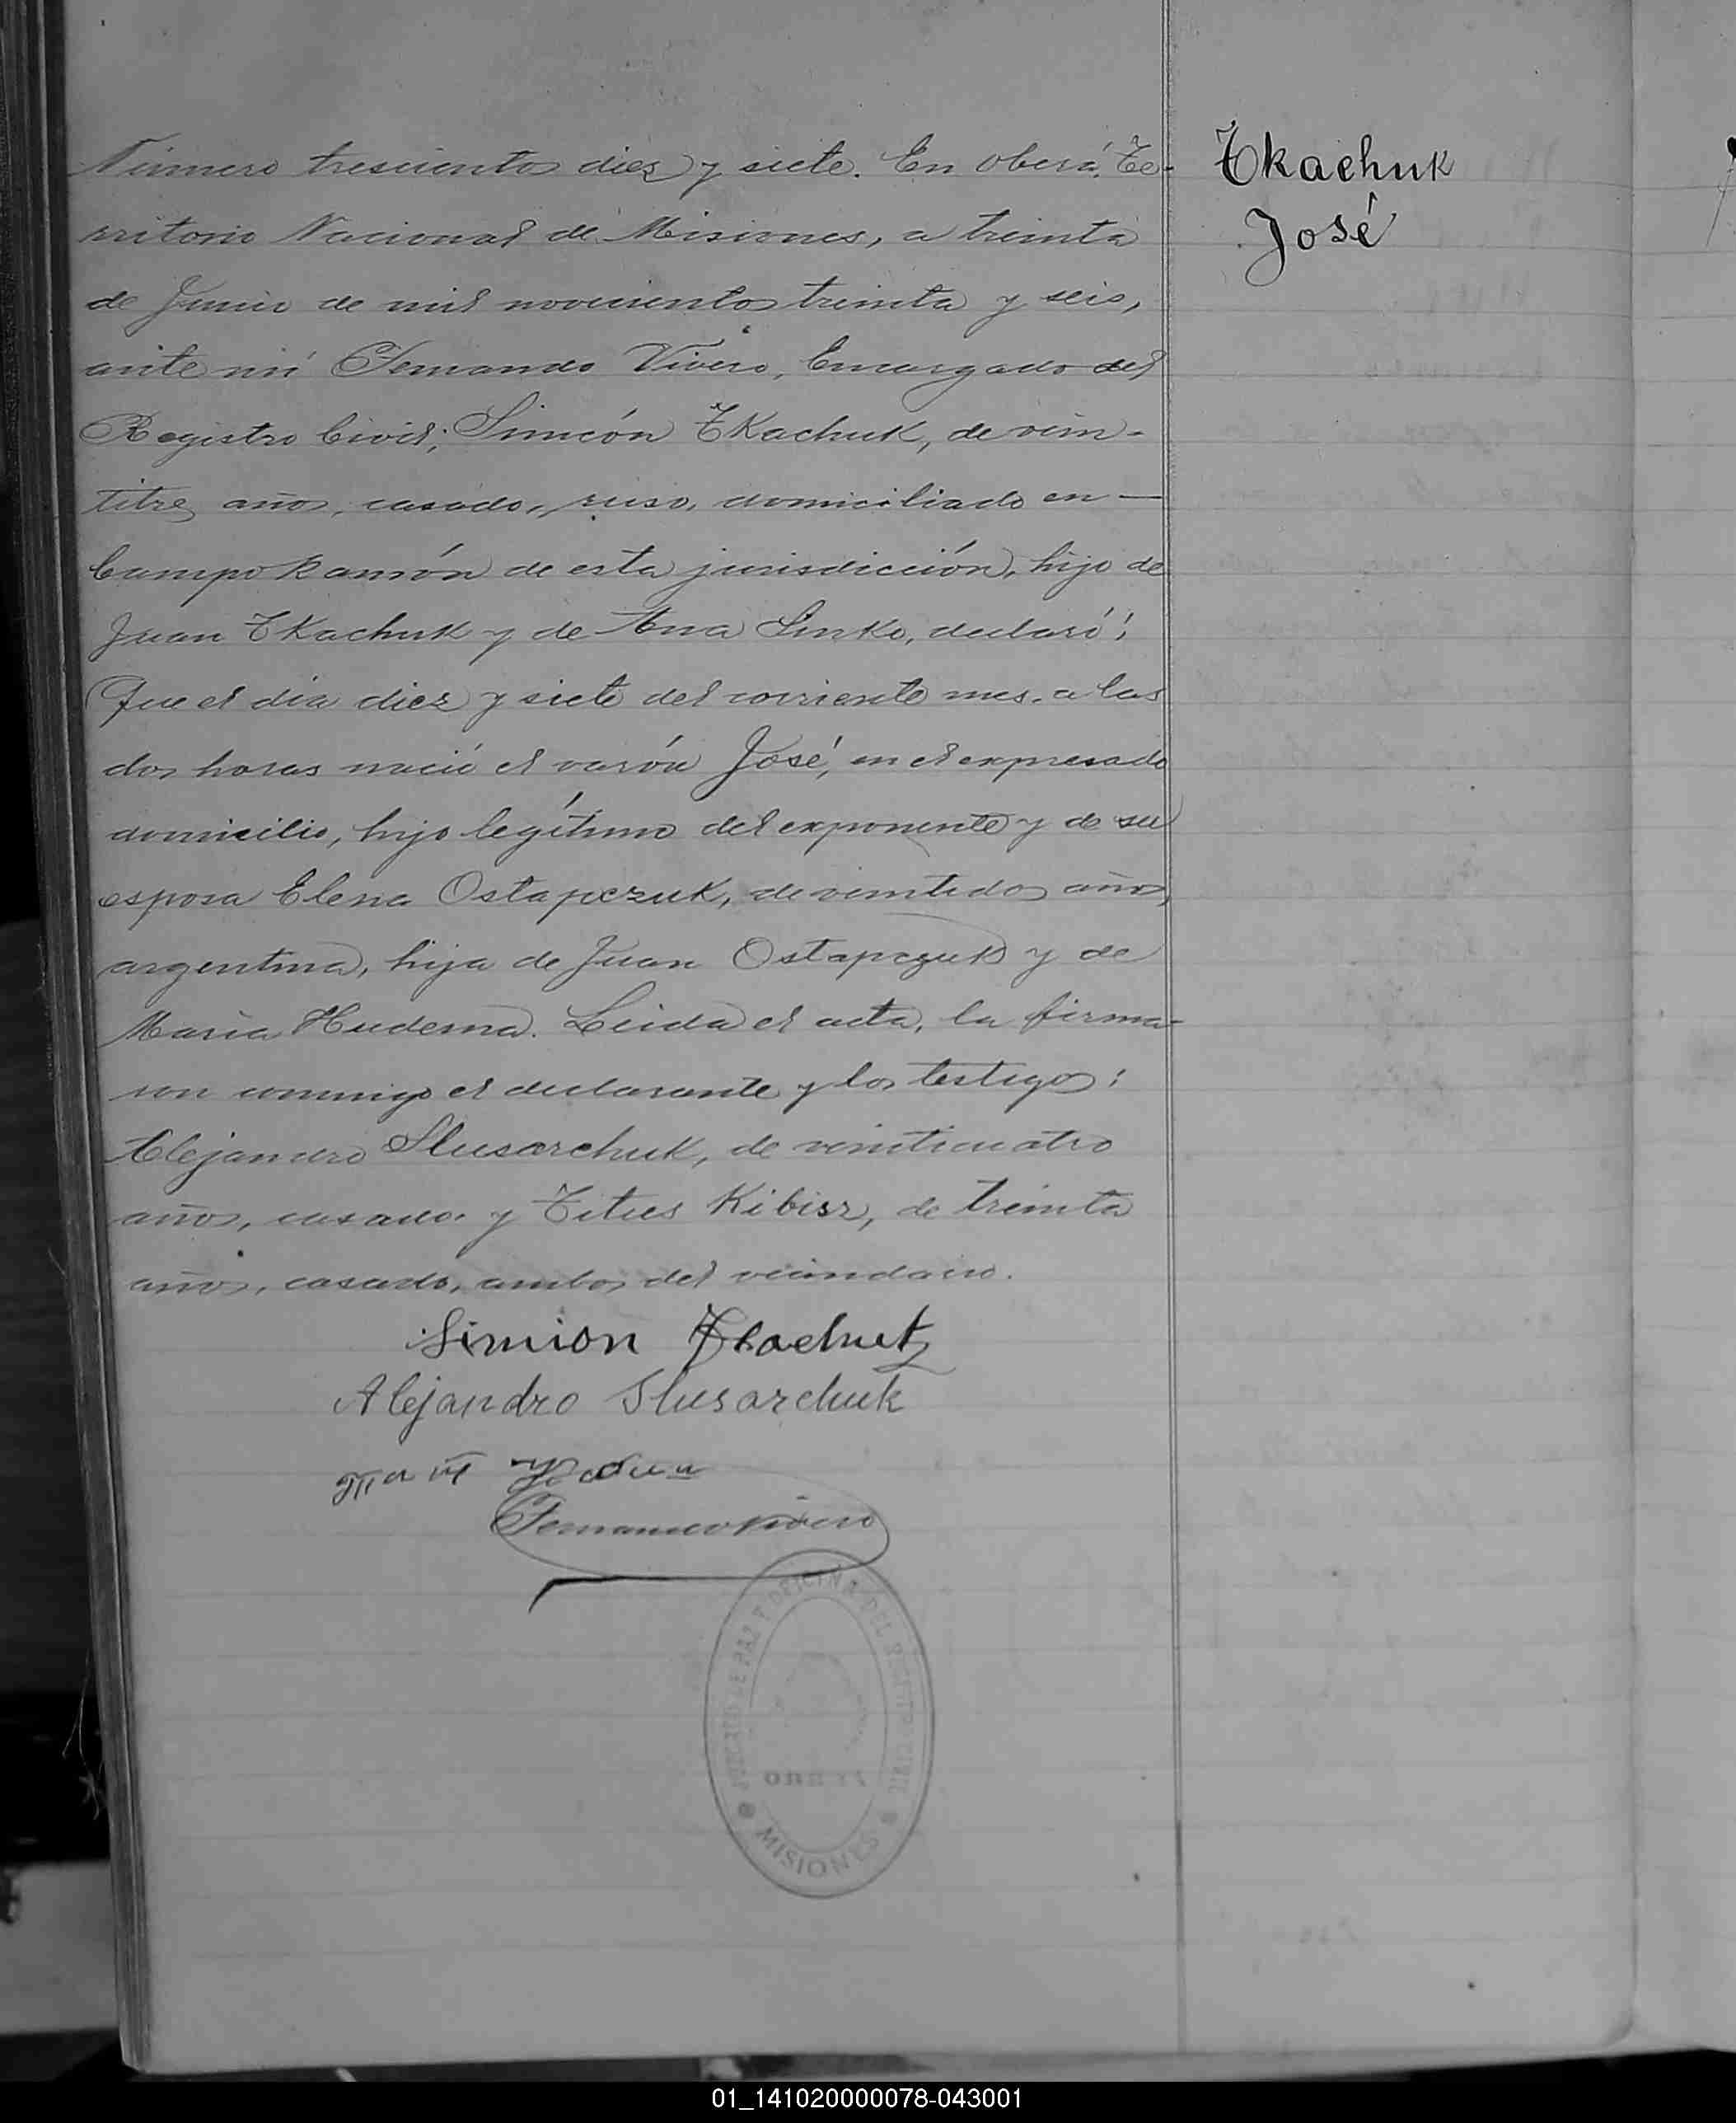 Número trescientos diez y siete. En Oberá, Te-
rritorio Nacional de Misiones, a treinta
de Junio de mil novecientos treinta y seis,
ante mí Fernando Vivero, Encargado del
Registro Civil; Simeón Tkachuk, de vein-
titres años, casado, ruso, domiciliado en —
Campo Ramón de esta jurisdicción, hijo de
Juan Tkachuk y de Ana declaró:
Que el día diez y siete del corriente mes, a las
dos horas nació el varón José, en el expresado
domicilio, hijo legítimo del exponente y de su
esposa Elena Ostapczuk, de veintidos años,
argentina, hija de Juan Ostapczuk y de
María Hudema. Leida el acta, la firma-
ron conmigo el declarante y los testigos:
Alejandro Slusarchuk, de veinticuatro
años, casado, y Titus Kibisz, de treinta
años, casado, ambos del vecindario.
Simion Tkachuk
Alejandro Slusarchuk
Fernando Vivero
OFICINA DEL REGISTRO CIVIL
MISIONES
Tkachuk
José
01_141020000078-043001